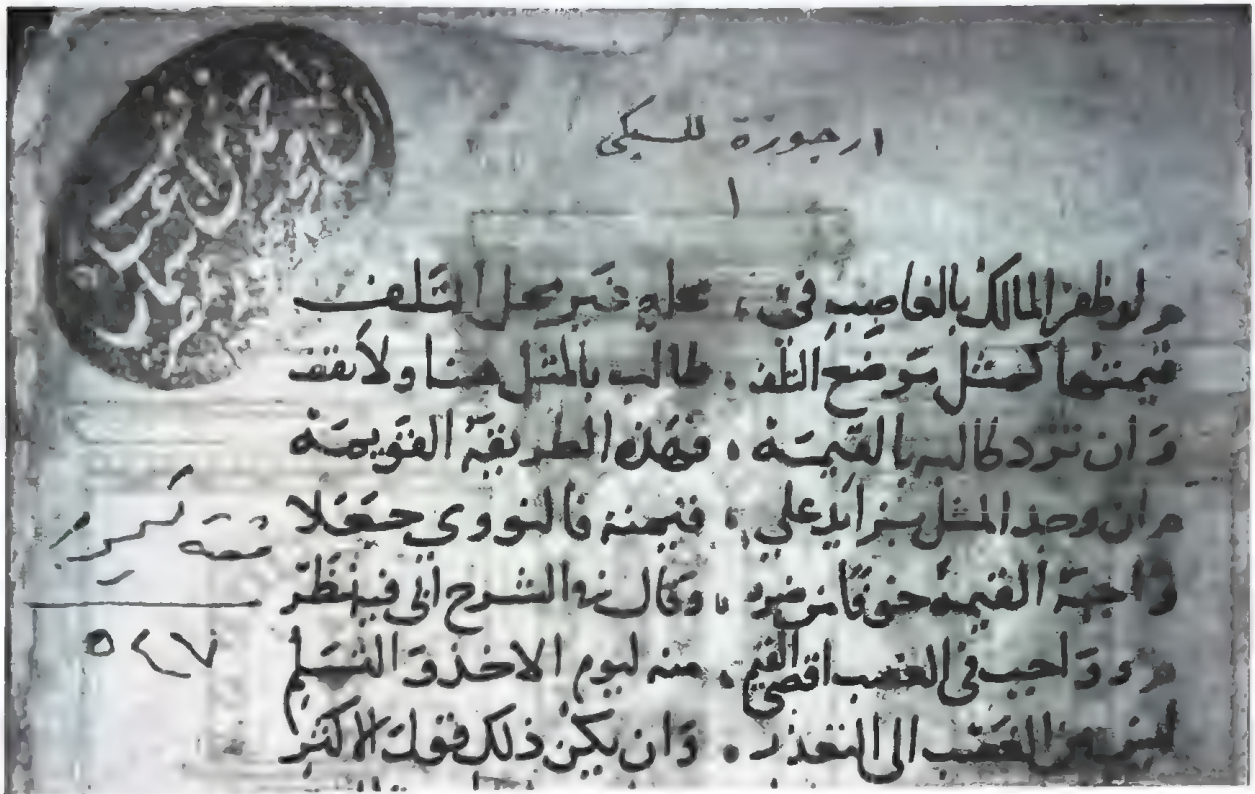 ارجوزة للسبكى
١
م لو ظفر المالك بالغاصب فى ، محله غير محل التلف
قيمتها كمثل موضع التلف ، طالب بالمثل هنا ولا تقف
وان تزد طالبه بالقيمة ، فهذه الطريقة القويمة
م ان وجد المثل بزايد على ، قيمته فالنووى جعلا
واجبه القيمة خوفا من ضرر ، وقال فى الشرح الى فيه نظر
م و واجب فى الغصب اقصى القيم ، منه ليوم الاخذ والتسلم
الغصب الى التعذر ، وان يكن ذلك فوق الاكثر
٥٤٢٧